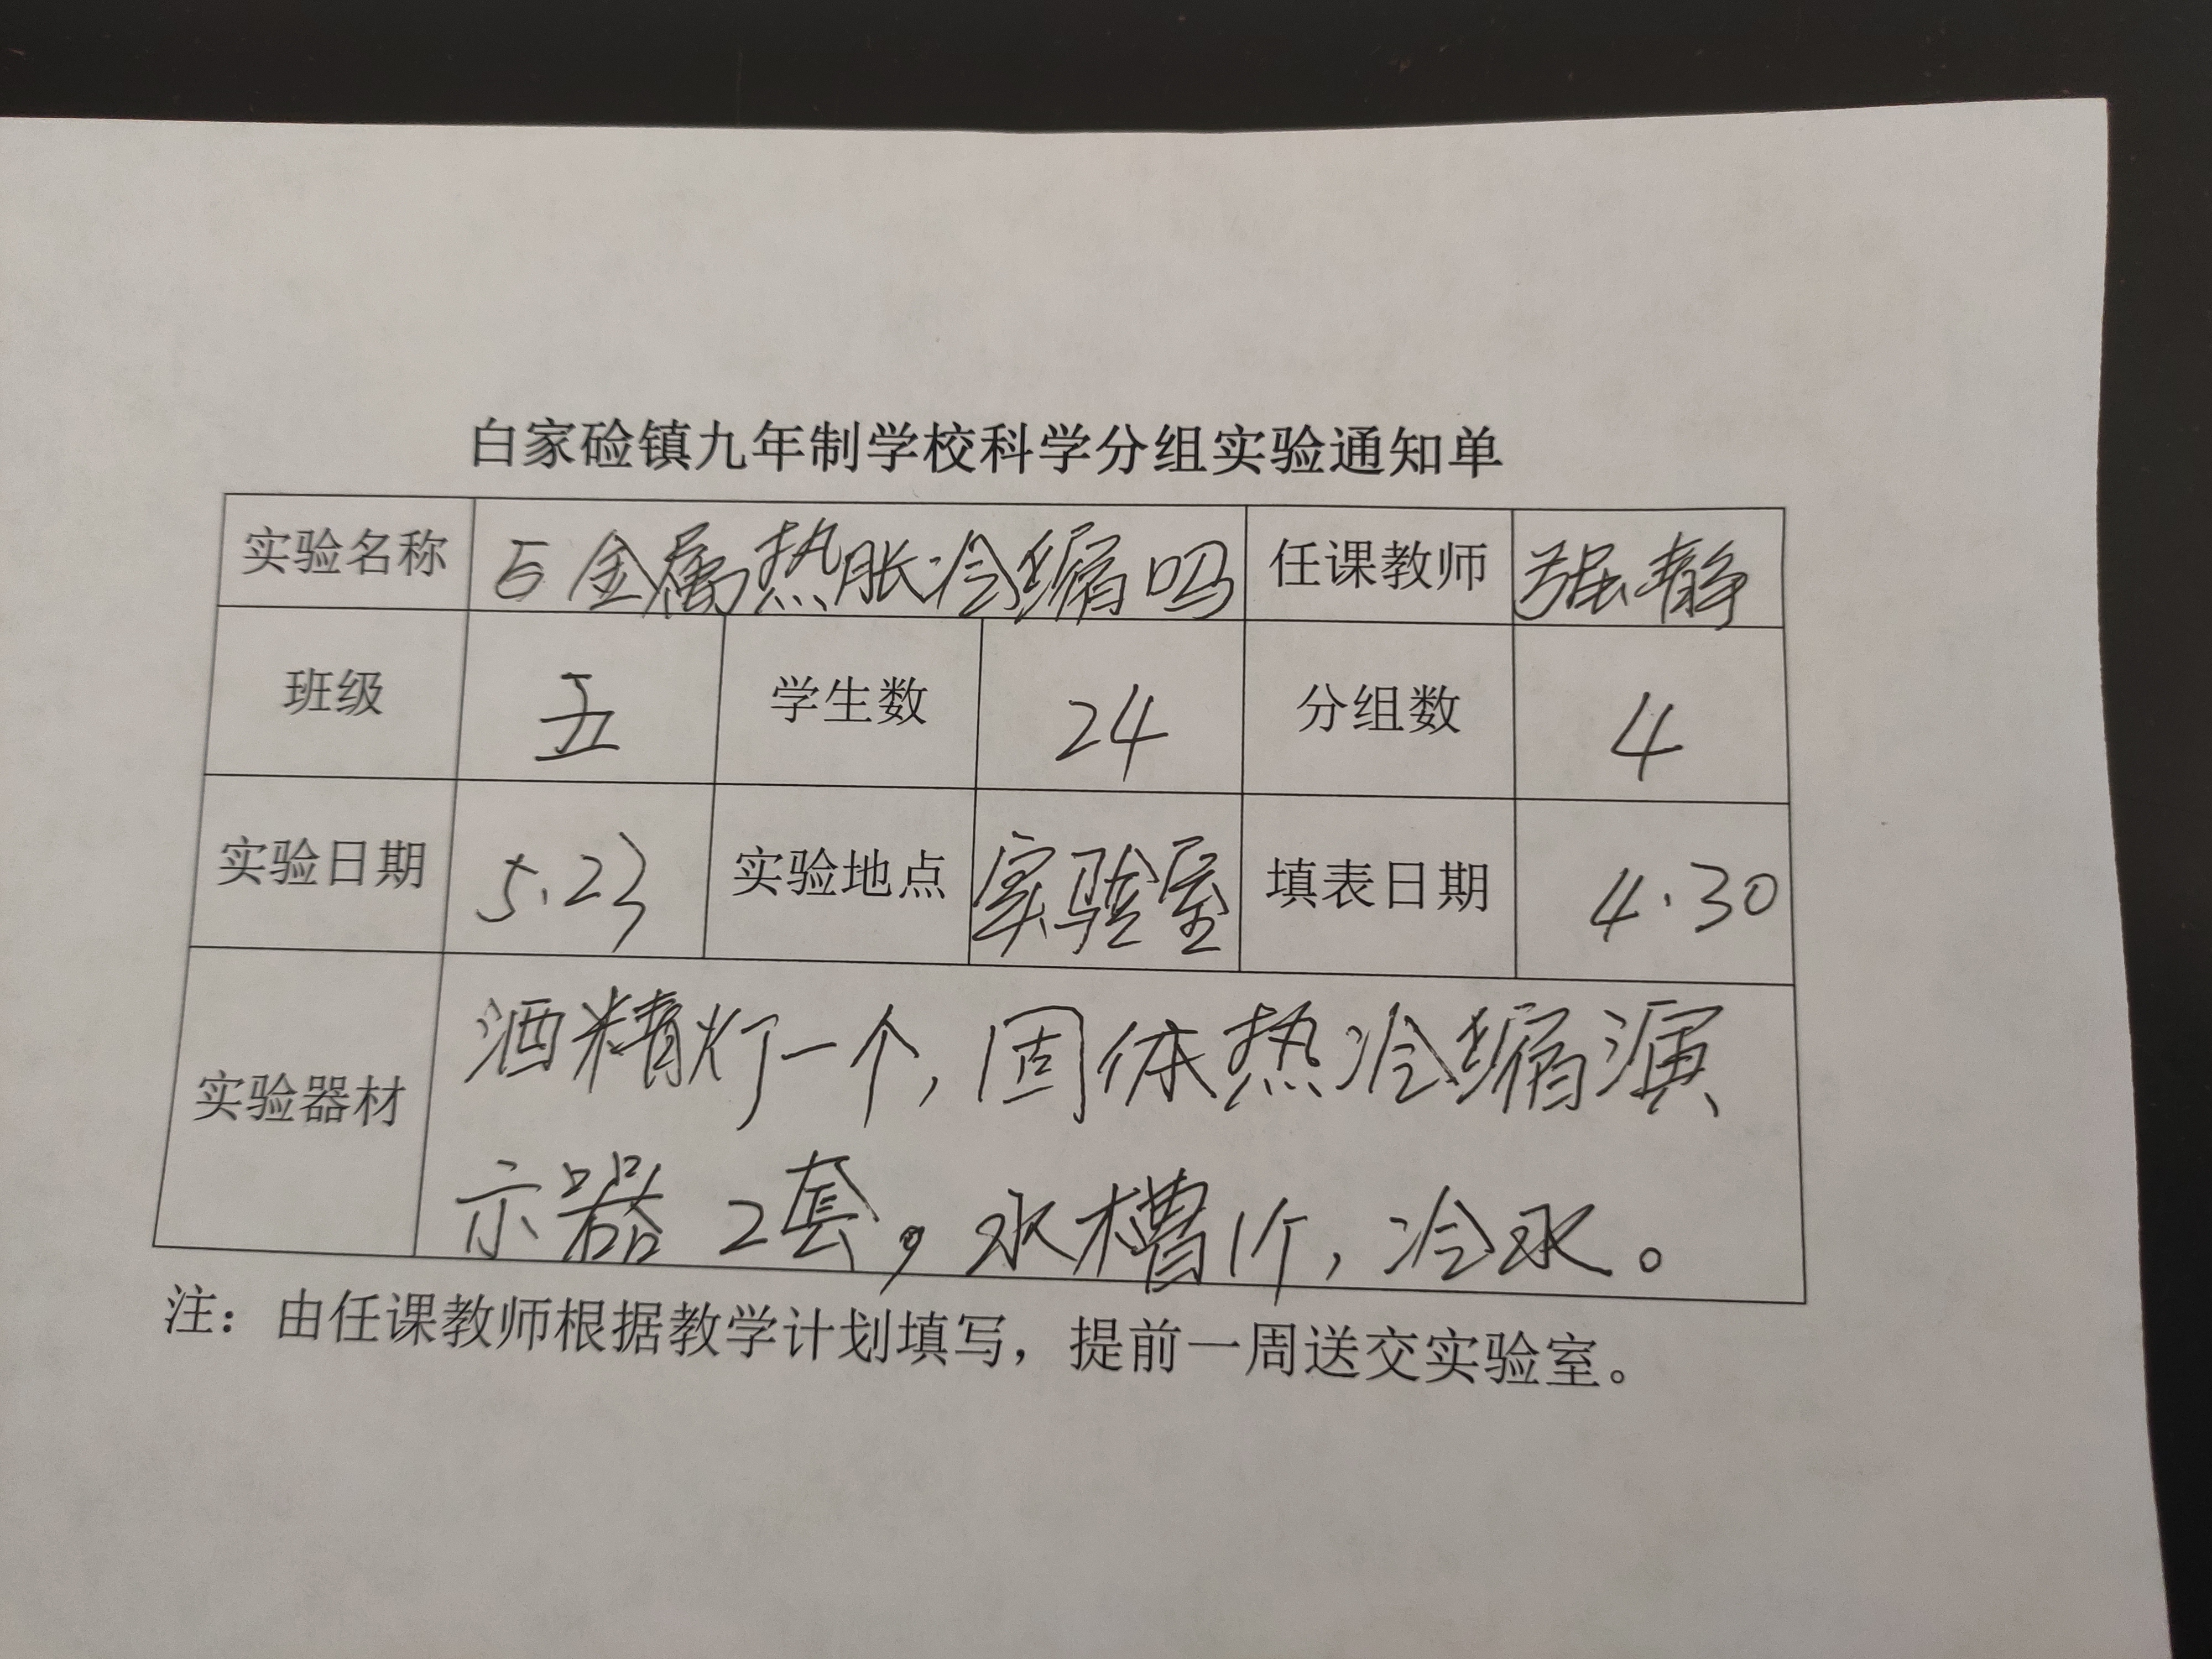 白家硷镇九年制学校科学分组实验通知单
实验名称 5 金属热胀冷缩吗 任课教师 强静
班级 五 学生数 24 分组数 4
实验日期 5.23 实验地点 实验室 填表日期 4.30
实验器材 酒精灯一个,固体热冷缩演
示器 2套,水槽1个,冷水。
注:由任课教师根据教学计划填写,提前一周送交实验室。